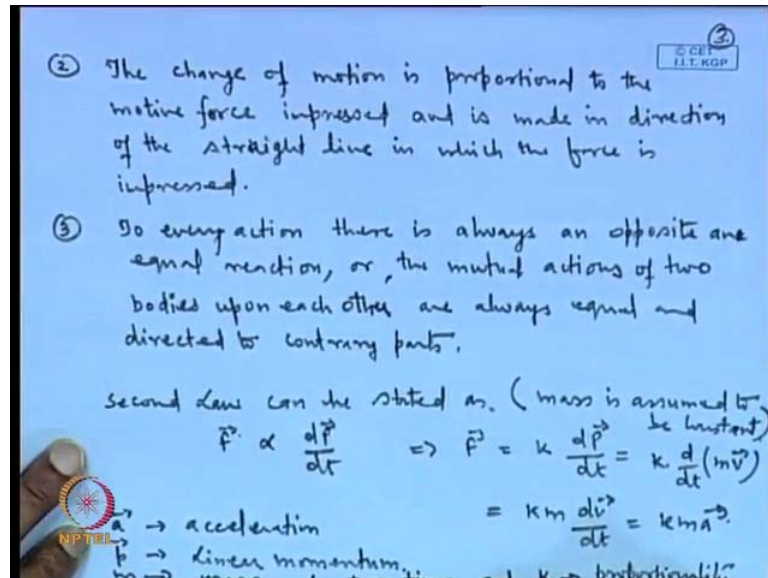 ③.
© CET
I.I.T. KGP
② The change of motion is proportional to the
motive force impressed and is made in direction
of the straight line in which the force is
impressed.
③ To every action there is always an opposite and
equal reaction, or, the mutual actions of two
bodies upon each other are always equal and
directed to contrary parts.
Second Law can be stated as. (mass is assumed to
be constant)
F⃗ ∝ dp⃗/dt ⇒ F⃗ = k dp⃗/dt = k. d/dt (mv⃗)
= km dv⃗/dt = kma⃗.
a⃗ → acceleration
p⃗ → Linear momentum.
NPTEL